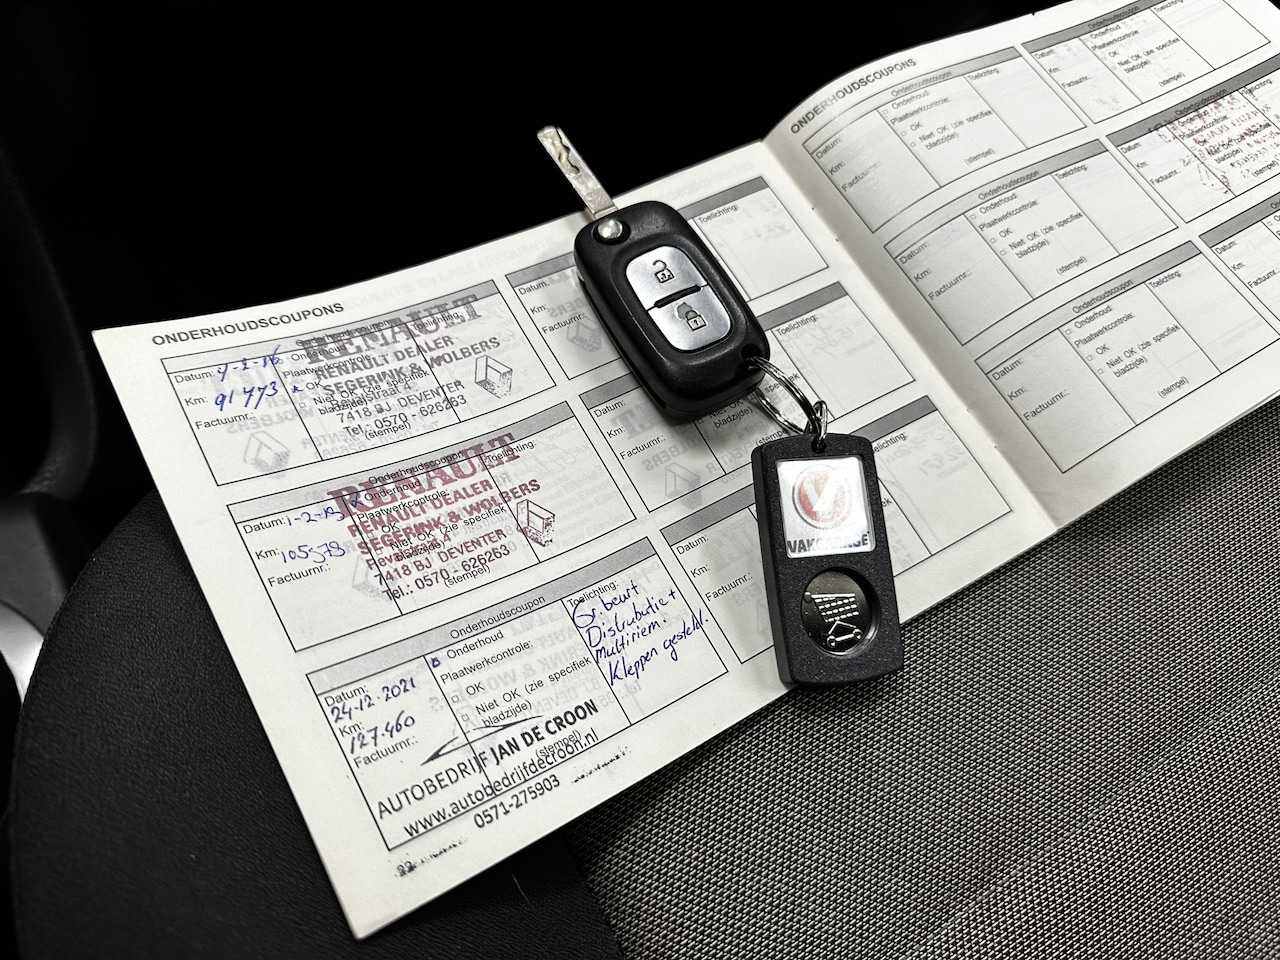 ONDERHOUDSCOUPONS
Onderhoudscoupon
Datum: 4-2-16
Km: 91773
Factuurnr.:
Onderhoud:
Plaatwerkcontrole:
OK
Niet OK (zie specifiek
bladzijde)
Toelichting:
(stempel)
RENAULT
RENAULT DEALER
SEGERINK & WOLBERS
7418 BJ DEVENTER
Tel.: 0570 - 626263
Onderhoudscoupon
Datum:
Km:
Factuurnr.:
Onderhoud
Plaatwerkcontrole:
OK
Niet OK (zie specifiek
bladzijde)
Toelichting:
(stempel)
RENAULT
RENAULT DEALER
SEGERINK & WOLBERS
7418 BJ DEVENTER
Tel.: 0570 - 626263
Onderhoudscoupon
Datum:
24-12-2021
Km:
127.460
Factuurnr.:
Onderhoud
Plaatwerkcontrole:
OK
Niet OK (zie specifiek
bladzijde)
Toelichting:
Gr. beurt
Distributie +
Multiriem.
Kleppen gesteld.
(stempel)
AUTOBEDRIJF JAN DE CROON
www.autobedrijfdecroon.nl
0571-275903
Datum:
Km:
Factuurnr.:
Toelichting:
Datum:
Km:
Factuurnr.:
Toelichting:
(stempel)
Datum:
Km:
Factuurnr.:
Toelichting:
V
VAKGARAGE
ONDERHOUDSCOUPONS
Onderhoudscoupon
Datum:
Km:
Factuurnr.:
Onderhoud:
Plaatwerkcontrole:
OK
Niet OK (zie specifiek
bladzijde)
Toelichting:
(stempel)
Onderhoudscoupon
Datum:
Km:
Factuurnr.:
Onderhoud:
Plaatwerkcontrole:
OK
Niet OK (zie specifiek
bladzijde)
Toelichting:
(stempel)
Onderhoudscoupon
Datum:
Km:
Factuurnr.:
Onderhoud:
Plaatwerkcontrole:
OK
Niet OK (zie specifiek
bladzijde)
Toelichting:
(stempel)
Datum:
Km:
Factuurnr.:
Onderhoud:
Plaatwerkcontrole:
OK
Niet OK (zie specifiek
bladzijde)
Toelichting:
(stempel)
Onderhoudscoupon
Datum:
Km:
Factuurnr.:
Datum:
Km:
Factuurnr.: